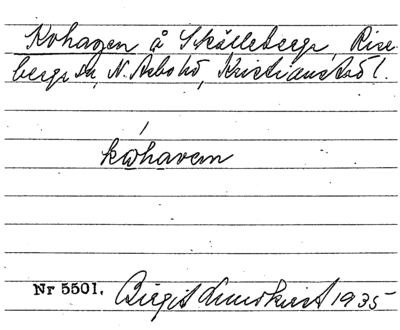 Kohagen å Skälleberga, Rise-
berga sn, N. Åsbo hd, Kristianstad l.
kohavern
Nr 5501. Birgit Lundkvist 1935